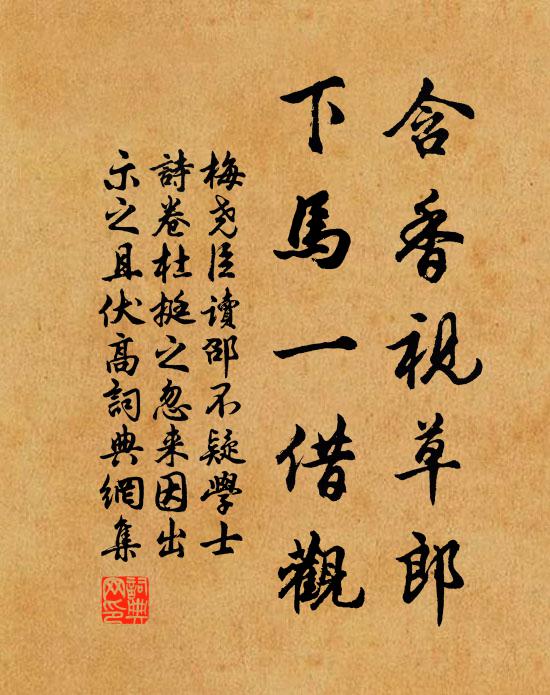 含香視草郎
下馬一借觀
梅堯臣讀邵不疑學士
詩卷杜挺之忽来因出
示之且伏高詞典網集
詞典网印